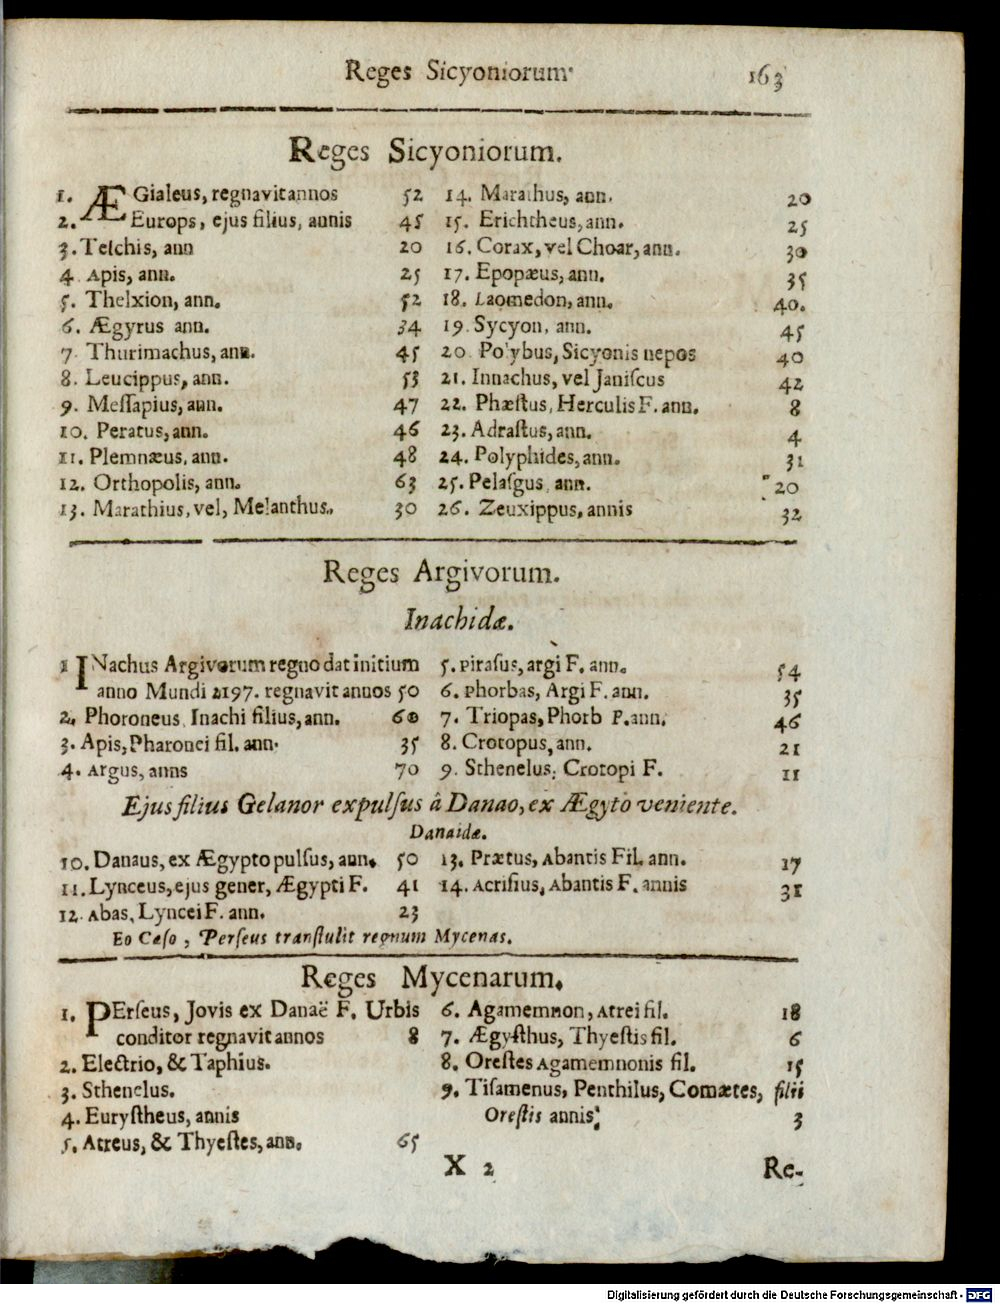 Reges Sicyoniorum 163
Reges Sicyoniorum.
1. ÆGialeus, regnavit annos 52
2. Europs, ejus filius, annis 45
3. Telchis, ann 20
4. Apis, ann. 25
5. Thelxion, ann. 52
6. Ægyrus ann. 34
7. Thurimachus, ann. 45
8. Leucippus, ann. 53
9. Meſſapius, ann. 47
10. Peratus, ann. 46
11. Plemnæus, ann. 48
12. Orthopolis, ann. 63
13. Marathius, vel, Melanthus, 30
14. Marathus, ann. 20
15. Erichtheus, ann. 25
16. Corax, vel Choar, ann. 30
17. Epopæus, ann. 35
18. Laomedon, ann. 40.
19. Sycyon, ann. 45
20. Polybus, Sicyonis nepos 40
21. Innachus, vel Janiſcus 42
22. Phæſtus, Herculis F. ann. 8
23. Adraſtus, ann. 4
24. Polyphides, ann. 31
25. Pelaſgus, ann. 20
26. Zeuxippus, annis 32
Reges Argivorum.
Inachidæ.
1 INachus Argivorum regno dat initium
anno Mundi 2197. regnavit annos 50
2. Phoroneus, Inachi filius, ann. 60
3. Apis, Pharonei fil. ann. 35
4. Argus, anns 70
5. Piraſus, argi F. ann. 54
6. Phorbas, Argi F. ann. 35
7. Triopas, Phorb F. ann. 46
8. Crotopus, ann. 21
9. Sthenelus, Crotopi F. 11
Ejus filius Gelanor expulſus â Danao, ex Ægyto veniente.
Danaidæ.
10. Danaus, ex Ægypto pulſus, ann. 50
11. Lynceus, ejus gener, Ægypti F. 41
12. Abas, Lyncei F. ann. 23
13. Prætus, Abantis Fil. ann. 17
14. Acriſius, Abantis F. annis 31
Eo Cæſo, Perſeus tranſtulit regnum Mycenas.
Reges Mycenarum.
1. PErſeus, Jovis ex Danaë F. Urbis
conditor regnavit annos 8
2. Electrio, & Taphius.
3. Sthenelus.
4. Euryſtheus, annis
5. Atreus, & Thyeſtes, ann. 65
6. Agamemnon, Atrei fil. 18
7. Ægyſthus, Thyeſtis fil. 6
8. Oreſtes Agamemnonis fil. 15
9. Tiſamenus, Penthilus, Comætes, filii
Oreſtis annis, 3
X 2 Re-
Digitalisierung gefördert durch die Deutsche Forschungsgemeinschaft - DFG